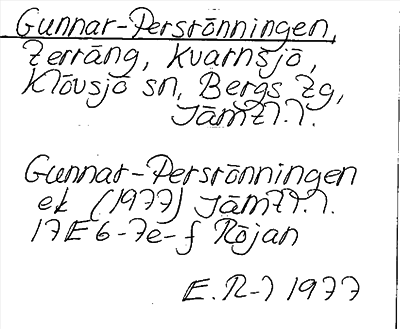 Gunnar-Persrönningen,
terräng, Kvarnsjö,
Klövsjö sn, Bergs tg,
Jämtl.l.
Gunnar-Persrönningen
ek (1977) Jämtl.l.
17E 6-7e-f Röjan
E.R-l 1977